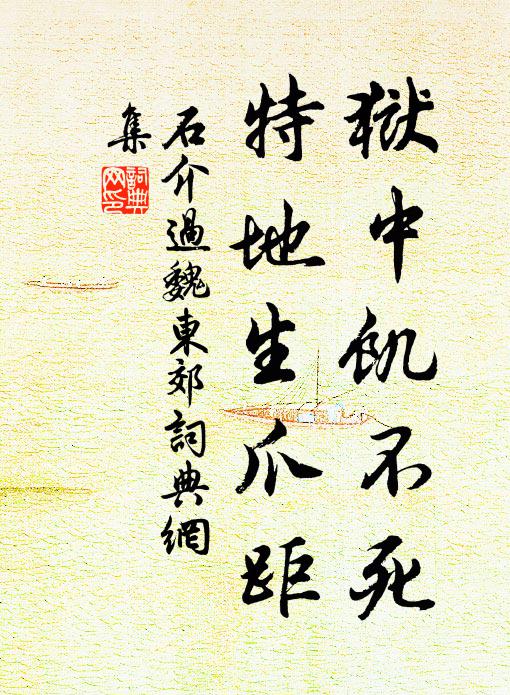 獄中飢不死
特地生爪距
石介過魏東郊詞典網
集
詞典
网印